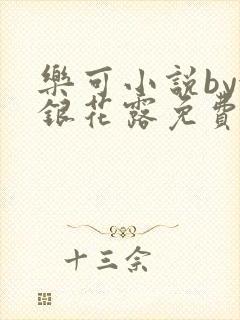 樂可小説by
銀花露免費
十三余